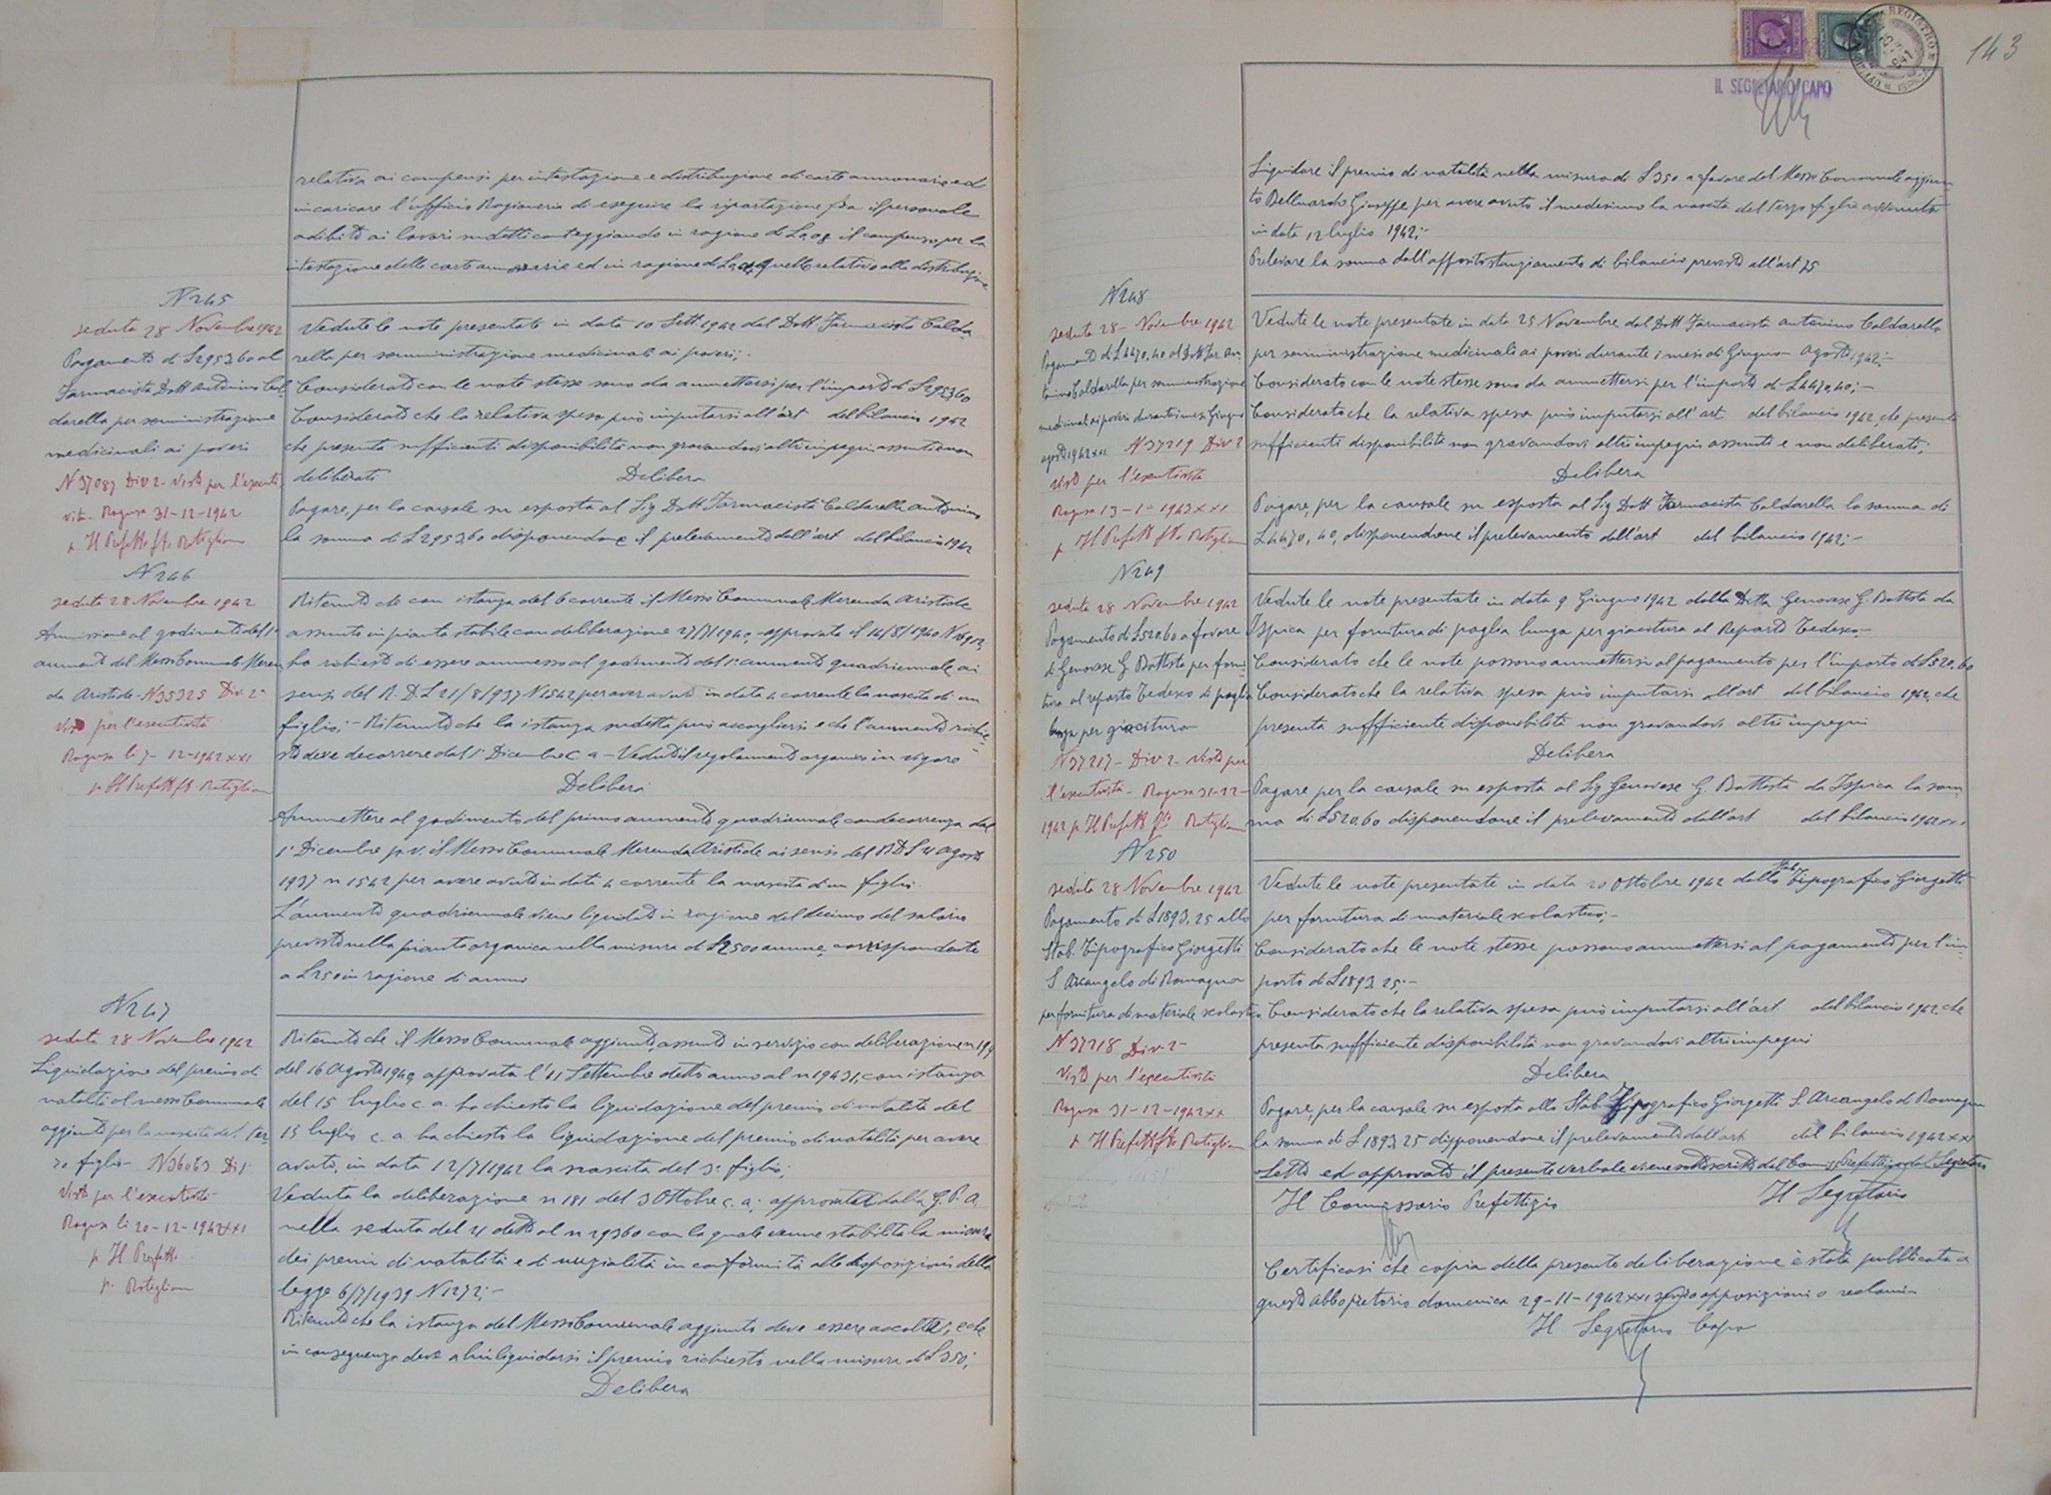 relativa ai compensi per intestazione e distribuzione di carte annonarie ed
incaricare l'ufficio Ragioneria di eseguire la ripartizione fra il personale
adibito ai lavori sudetti conteggiando in ragione di L 0,08 il compenso per la
intestazione delle carte annonarie ed in ragione di quello relativo alla distribuzione
N 245
seduta 28 Novembre 1942
Pagamento di L 2953,60 al
Farmacista Dott Antonino Cal-
darella per somministrazione
medicinali ai poveri
N 37087 Div 2- Visto per l'esecuti
vità- Ragusa 31-12-1942
p Il Prefetto fto Rotigliano
Vedute le note presentate in data 10 Sett. 1942 dal Dott Farmacista Calda-
rella per somministrazione medicinali ai poveri;-
Considerato con le note stesse sono da ammettersi per l'importo di L 2953,60
Considerato che la relativa spesa può imputarsi all'art del bilancio 1942
che presenta sufficienti disponibilità non gravandovi altri impegni assunti e non
deliberati Delibera
Pagare, per la causale su esposta al Sig Dott Farmacista Caldarella Antonino
la somma di L 2953,60 disponendone il prelevamento dall'art del bilancio 1942
N 246
seduta 28 Novembre 1942
Ammissione al godimento del 1°
aumento del Messo Comunale Meren
da Aristide- N 35325 Div. 2-
Visto per l'esecutività
Ragusa li 7- 12-1942 XXI
p. Il Prefetto fto Rotigliano
Ritenuto che con istanza del 6 corrente il Messo Comunale Merenda Aristide
assunto in pianta stabile con deliberazione approvata il 14/8/1940 N
ha richiesto di essere ammesso al godimento del 1° aumento quadriennale ai
sensi del R. D. L 21/8/937 N 1542 per aver avuto in data 4 corrente la nascita di un
figlio;- Ritenuto che la istanza sudetta può accogliersi e che l'aumento richie-
sto deve decorrere dal 1° Dicembre c a - Veduto il regolamento organico in vigore
Delibera
Ammettere al godimento del primo aumento quadriennale con decorrenza dal
1° Dicembre p.v. il Messo Comunale Merenda Aristide ai sensi del R D L 21 agosto
1937 n 1542 per avere avuto in data 4 corrente la nascita d'un figlio.
L'aumento quadriennale viene liquidato in ragione del decimo del salario
previsto nella pianta organica nella misura di L 2500 annue, corrispondente
a L 250 in ragione di anno
N 247
seduta 28 Novembre 1942
Liquidazione del premio di
natalità al messo Comunale
aggiunto per la nascita del ter
zo figlio- N 36063 Div
Visto per l'esecutività-
Ragusa li 20-12-1942 XXI
p Il Prefetto
fto Rotigliano
Ritenuto che il Messo Comunale aggiunto, assunto in servizio con deliberazione n 199
del 16 Agosto 1940, approvata l'11 Settembre detto anno al n 19431, con istanza
del 15 luglio c. a. ha chiesto la liquidazione del premio di natalità del
15 luglio c. a ha chiesto la liquidazione del premio di natalità per avere
avuto, in data 12/7/1942 la nascita del 3° figlio;
Veduta la deliberazione n 181 del 3 Ottobre c. a; approvata dalla G. P. A.
nella seduta del 21 detto al n 29360 con la quale venne stabilita la misura
dei premi di natalità e di nuzialità in conformità alle disposizioni della
legge 6/7/1939 N 1272;-
Ritenuto che la istanza del Messo Comunale aggiunto deve essere accolta; e che
in conseguenza deve a lui liquidarsi il premio richiesto nella misura di L 350;
Delibera
143
IL SEGRETARIO CAPO
Liquidare il premio di natalità nella misura di L 350 a favore del Messo Comunale aggiun-
to Belluardo Giuseppe per avere avuto il medesimo la nascita del terzo figlio avvenuta
in data 12 luglio 1942;-
Prelevare la somma dall'apposito stanziamento di bilancio previsto all'art 75
N 248
seduta 28- Novembre 1942
Pagamento di L 4470,40 al Dott Far. An-
tonino Caldarella per somministrazione
medicinali ai poveri durante i mesi Giugno
agosto 1942 XXI N 37219 Div 2
Visto per l'esecutività
Ragusa 13-1-1943 XXI
p Il Prefetto fto Rotigliano
Vedute le note presentate in data 25 Novembre dal Dott Farmacista Antonino Caldarella
per somministrazione medicinali ai poveri durante i mesi di Giugno- Agosto 1942;-
Considerato con le note stesse sono da ammettersi per l'importo di L 4470,40;-
Considerato che la relativa spesa può imputarsi all'art. del bilancio 1942, che presenta
sufficienti disponibilità non gravandovi altri impegni assunti e non deliberati;
Delibera
Pagare, per la causale su esposta al Sig Dott Farmacista Caldarella la somma di
L 4470,40, disponendone il prelevamento dall'art del bilancio 1942;-
N 249
seduta 28 Novembre 1942
Pagamento di L 520,60 a favore
di Genovese G. Battista per forni-
tura al reparto Tedesco di paglia
lunga per giacitura
N 37217- Div 2- Visto per
l'esecutività- Ragusa 31-12-
1942 p Il Prefetto fto Rotigliano
Vedute le note presentate in data 9 Giugno 1942 dalla Ditta Genovese G. Battista da
Ispica per fornitura di paglia lunga per giacitura al Reparto Tedesco-
Considerato che le note possono ammettersi al pagamento per l'importo di L 520,60
Considerato che la relativa spesa può imputarsi all'art del bilancio 1942, che
presenta sufficiente disponibilità non gravandovi altri impegni
Delibera
Pagare per la causale su esposta al Sig Genovese G. Battista da Ispica la som-
ma di L 520,60 disponendone il prelevamento dall'art del bilancio 1942 XXI
N 250
seduta 28 Novembre 1942
Pagamento di L 1893,25 allo
Stab. Tipografico Giorgetti
S Arcangelo di Romagna
per fornitura di materiale scolastico
N 37218 Div. 2-
Visto per l'esecutività
Ragusa 31-12-1942 XX
p Il Prefetto fto Rotigliano
Vedute le note presentate in data 20 Ottobre 1942 dallo Stab Tipografico Giorgetti
per fornitura di materiale scolastico;-
Considerato che le note stesse possono ammettersi al pagamento per l'im-
porto di L 1893,25;-
Considerato che la relativa spesa può imputarsi all'art del bilancio 1942, che
presenta sufficiente disponibilità non gravandovi altri impegni
Delibera
Pagare, per la causale su esposta allo Stab. Tipografico Giorgetti S. Arcangelo di Romagna
la somma di L 1893,25 disponendone il prelevamento dall'art del bilancio 1942 XXI
Letto ed approvato il presente verbale viene sottoscritto dal Comm. Prefettizio e dal Segretario
Il Commissario Prefettizio Il Segretario
Certificasi che copia della presente deliberazione è stata pubblicata a
quest'Albo pretorio domenica 29-11-1942 XXI senza opposizioni o reclami-
Il Segretario Capo